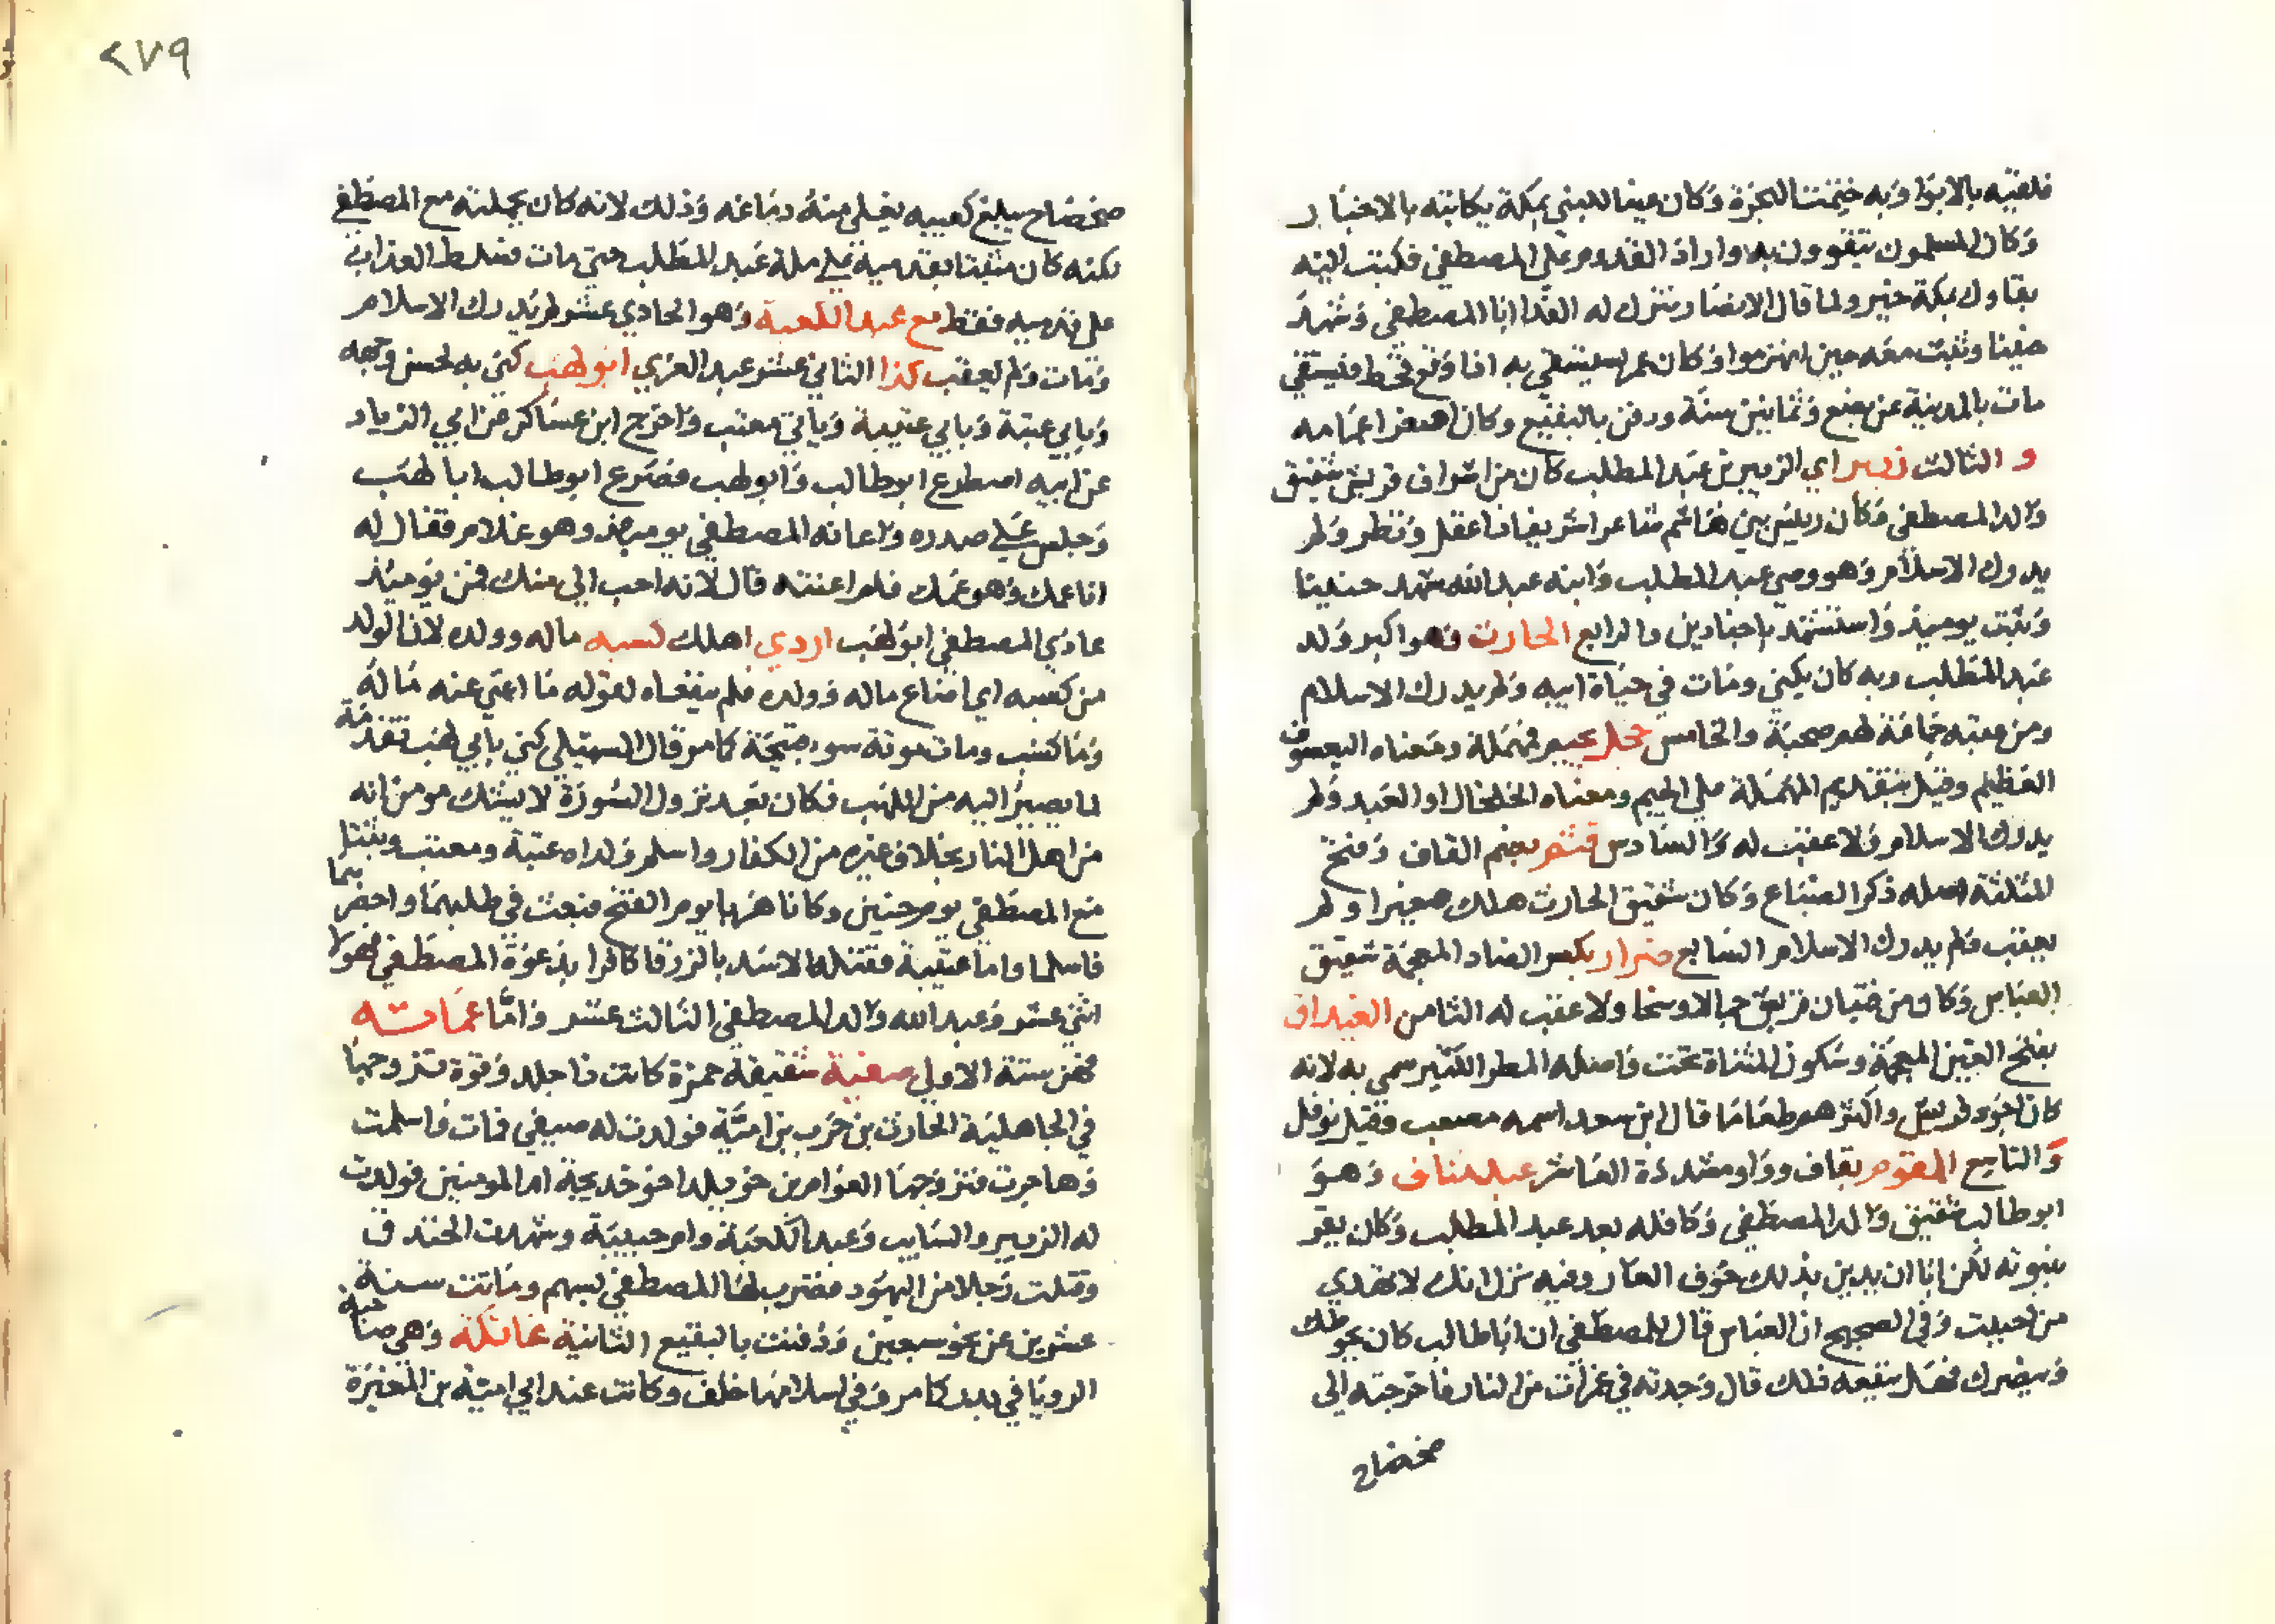 فلقيه بالابوا وبه ختمت الهجرة وكان عينا للنبي بمكة يكاتبه بالاخبار
وكان المسلمون يتقوون به واراد القدوم علي المصطفي فكتب اليه
بقاوك بمكة خير ولما قال الانصار نترك له الفدا ابا المصطفي وشهد
حنينا وثبت معه حين انهزموا وكان عمر يستسقي به اذا وقع قحط فيسقي
مات بالمدينة عن بضع وثمانين سنة ودفن بالبقيع وكان اصغر اعمامه
و الثالث زبير اي الزبير بن عبد المطلب كان من اشراف قريش شقيق
والد المصطفي وكان رييس بني هاشم شاعرا شريفا ذا عقل ونظر ولم
يدرك الاسلام وهو وصي عبد المطلب وابنه عبد الله شهد حنينا
وثبت يوميذ واستشهد باجنادين والرابع الحارث وهو اكبر ولد
عبد المطلب وبه كان يكني ومات في حياة ابيه ولم يدرك الاسلام
ومن عقبه جماعة لهم صحبة والخامس حجل بجيم فمهملة ومعناه اليعسوب
العظيم وقيل بتقديم المهملة علي الجيم ومعناه الخلخال او القيد ولم
يدرك الاسلام ولا عقب له والسادس قثم بضم القاف وفتح
المثلثة اصله ذكر الضباع وكان شقيق الحارث هلك صغيرا ولم
يعقب ولم يدرك الاسلام السابع ضرار بكسر الضاد المعجمة شقيق
العباس وكان من فتيان قريش جمالا وسخا ولا عقب له الثامن الغيداق
بفتح الغين المعجمة وسكون المثناة تحت واصله المطر الكثير سمي به لانه
كان اجود قريش واكثرهم طعاما قال ابن سعد اسمه مصعب وقيل نوفل
والتاسع المقوم بقاف وواو مشددة العاشر عبد مناف وهو
ابو طالب شقيق والد المصطفي وكافله بعد عبد المطلب وكان يقر
بنبوته لكن ابا ان يدين بذلك خوف العار وفيه نزل انك لا تهدي
من احببت وفي الصحيح ان العباس قال للمصطفي ان ابا طالب كان يحوطك
وينصرك فهل ينفعه ذلك قال وجدته في غمرات من النار فاخرجته الي
ضحضاح
٢٧٩
ضحضاح يبلغ كعبيه يغلي منه دماغه وذلك لانه كان بجملته مع المصطفي
لكنه كان مثبتا بقدميه علي ملة عبد المطلب حتي مات فسلط العذاب
علي قدميه فقط مع عبد الكعبة وهو الحادي عشر لم يدرك الاسلام
ومات ولم يعقب كذا الثاني عشر عبد العزي ابو لهب كني به لحسن وجهه
وبابي عتبة وبابي عتيبة وبابي معتب واخرج ابن عساكر عن ابي الزياد
عن ابيه اصطرع ابو طالب وابو لهب فصرع ابو طالب ابا لهب
وجلس علي صدره واعانه المصطفي يوميذ وهو غلام فقال له
انا عمك وهو عمك فلم اعنته قال لانه احب الي منك فمن يوميذ
عادي المصطفي ابو لهب اردي اهلك كسبه ماله وولده لان الولد
من كسبه اي اضاع ماله وولده فلم ينفعاه لقوله ما اغني عنه ماله
وما كسب ومات موتة سو قبيحة كما مر قال السهيلي كني بابي لهب تقدمة
لما يصير اليه من اللهب فكان بعد نزول السورة لا يشك مومن انه
من اهل النار بخلاف غيره من الكفار واسلم ولداه عتبة ومعتب وثبتا
مع المصطفي يوم حنين وكانا هربا يوم الفتح فبعث في طلبهما واحضر بهما
فاسلما واما عتيبة فقتله الاسد بالزرقا كافرا بدعوة المصطفي فهولا
اثني عشر وعبد الله والد المصطفي الثالث عشر واما عماته
فهن ستة الاولي صفية شقيقة حمزة كانت ذا جلد وقوة تزوجها
في الجاهلية الحارث بن حرب بن امية فولدت له صيفي فمات فاسلمت
وهاجرت فتزوجها العوام بن خويلد اخو خديجة ام المومنين فولدت
له الزبير والسايب وعبد الكعبة وام حبيبة وشهدت الخندق
وقتلت رجلا من اليهود فضرب لها المصطفي بسهم وماتت سنة
عشرين عن نحو سبعين ودفنت بالبقيع الثانية عاتكة وهي صاحبة
الرويا في بدر كما مر وفي اسلامها خلف وكانت عند ابي امية بن المغيرة